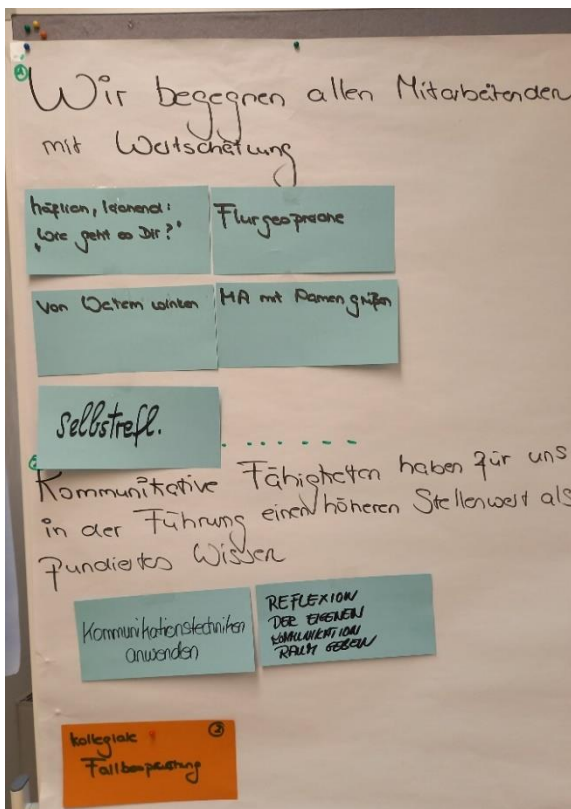 ①
Wir begegnen allen Mitarbeitenden
mit Wertschätzung
höflich, lächelnd:
"Wie geht es Dir?"
Flurgespräche
von Weitem winken
MA mit Namen grüßen
Selbstrefl.
Kommunikative Fähigkeiten haben für uns
in der Führung einen höheren Stellenwert als
fundiertes Wissen
Kommunikationstechniken
anwenden
REFLEXION
DER EIGENEN
KOMMUNIKATION
RAUM GEBEN
kollegiale
②
Fallbesprechung